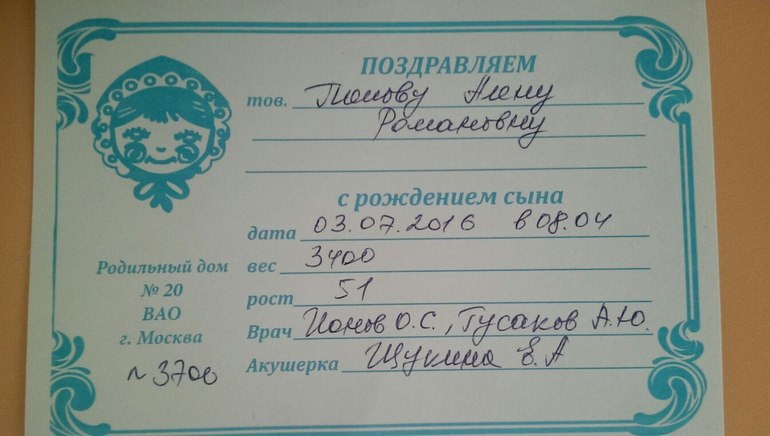 ПОЗДРАВЛЯЕМ
тов. Попову Алену
Романовну
с рождением сына
дата 03.07.2016 в 08.04
вес 3400
рост 51
Врач Ионов О.С., Гусаков А.Ю.
Акушерка Щукина Е.А
Родильный дом
№ 20
ВАО
г. Москва
~ 3700